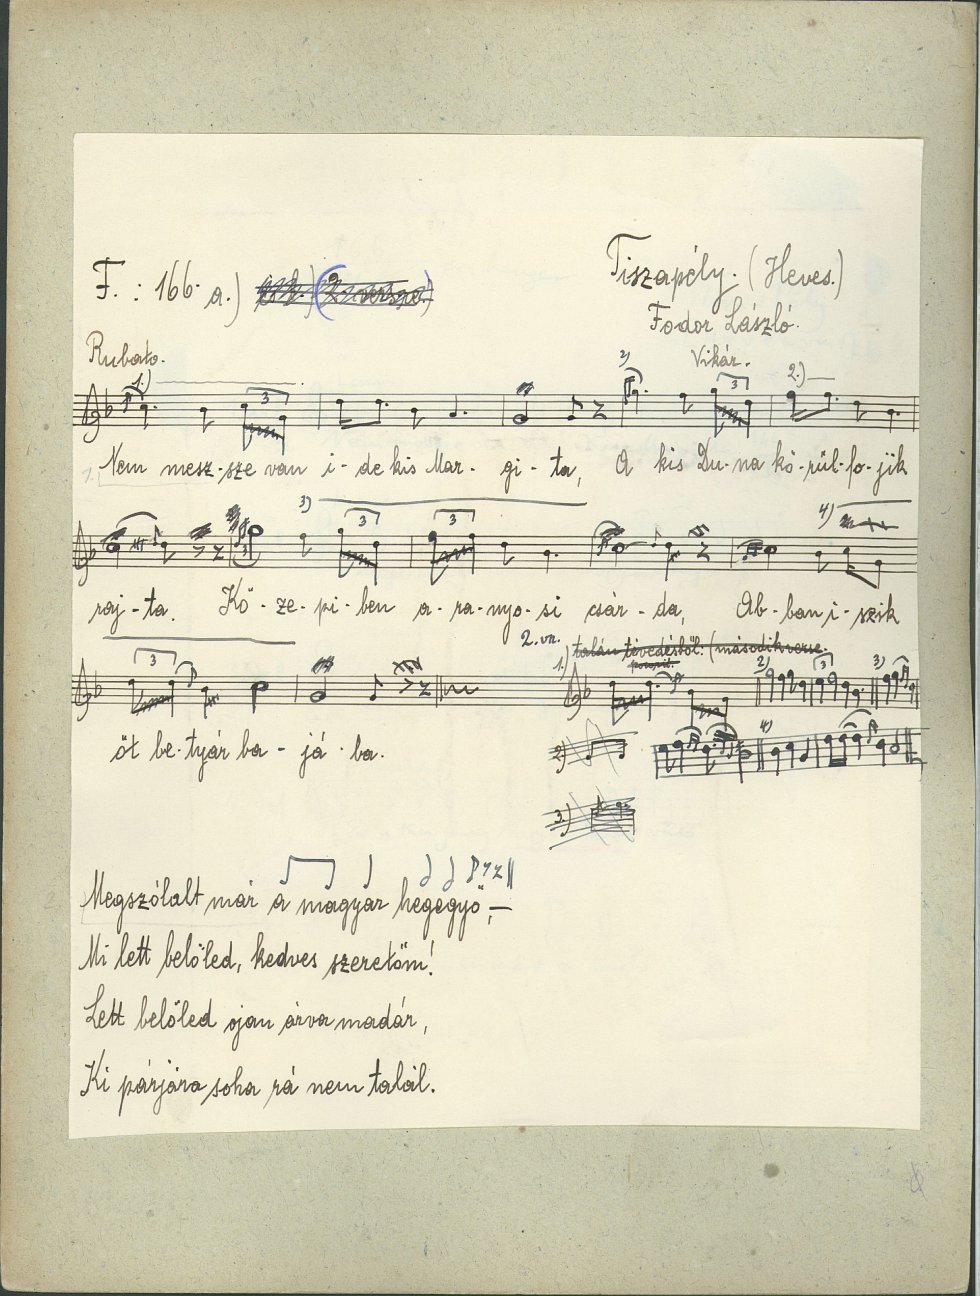 F. : 166. a.)
Tiszapély. (Heves.)
Fodor László.
Vikár.
Rubato.
1.) 3 2) 3 2.)
1. Nem mesz-sze van i-de kis Mar-gi-ta, A kis Du-na kö-rül-fo-jik
3) 3 3 4)
raj-ta. Kö-ze-pi-ben a-ra-nyo-si csár-da, Ab-ban i-szik
2. vsz.
1.) talán tévedésből: (második versse.
3 2) 3 3)
öt be-tyár ba-já-ba.
2) 4)
3.)
2. Megszólalt már a magyar hegegyő, —
Mi lett belőled, kedves szeretőm!
Lett belőled ojan árva madár,
Ki párjára soha rá nem talál.